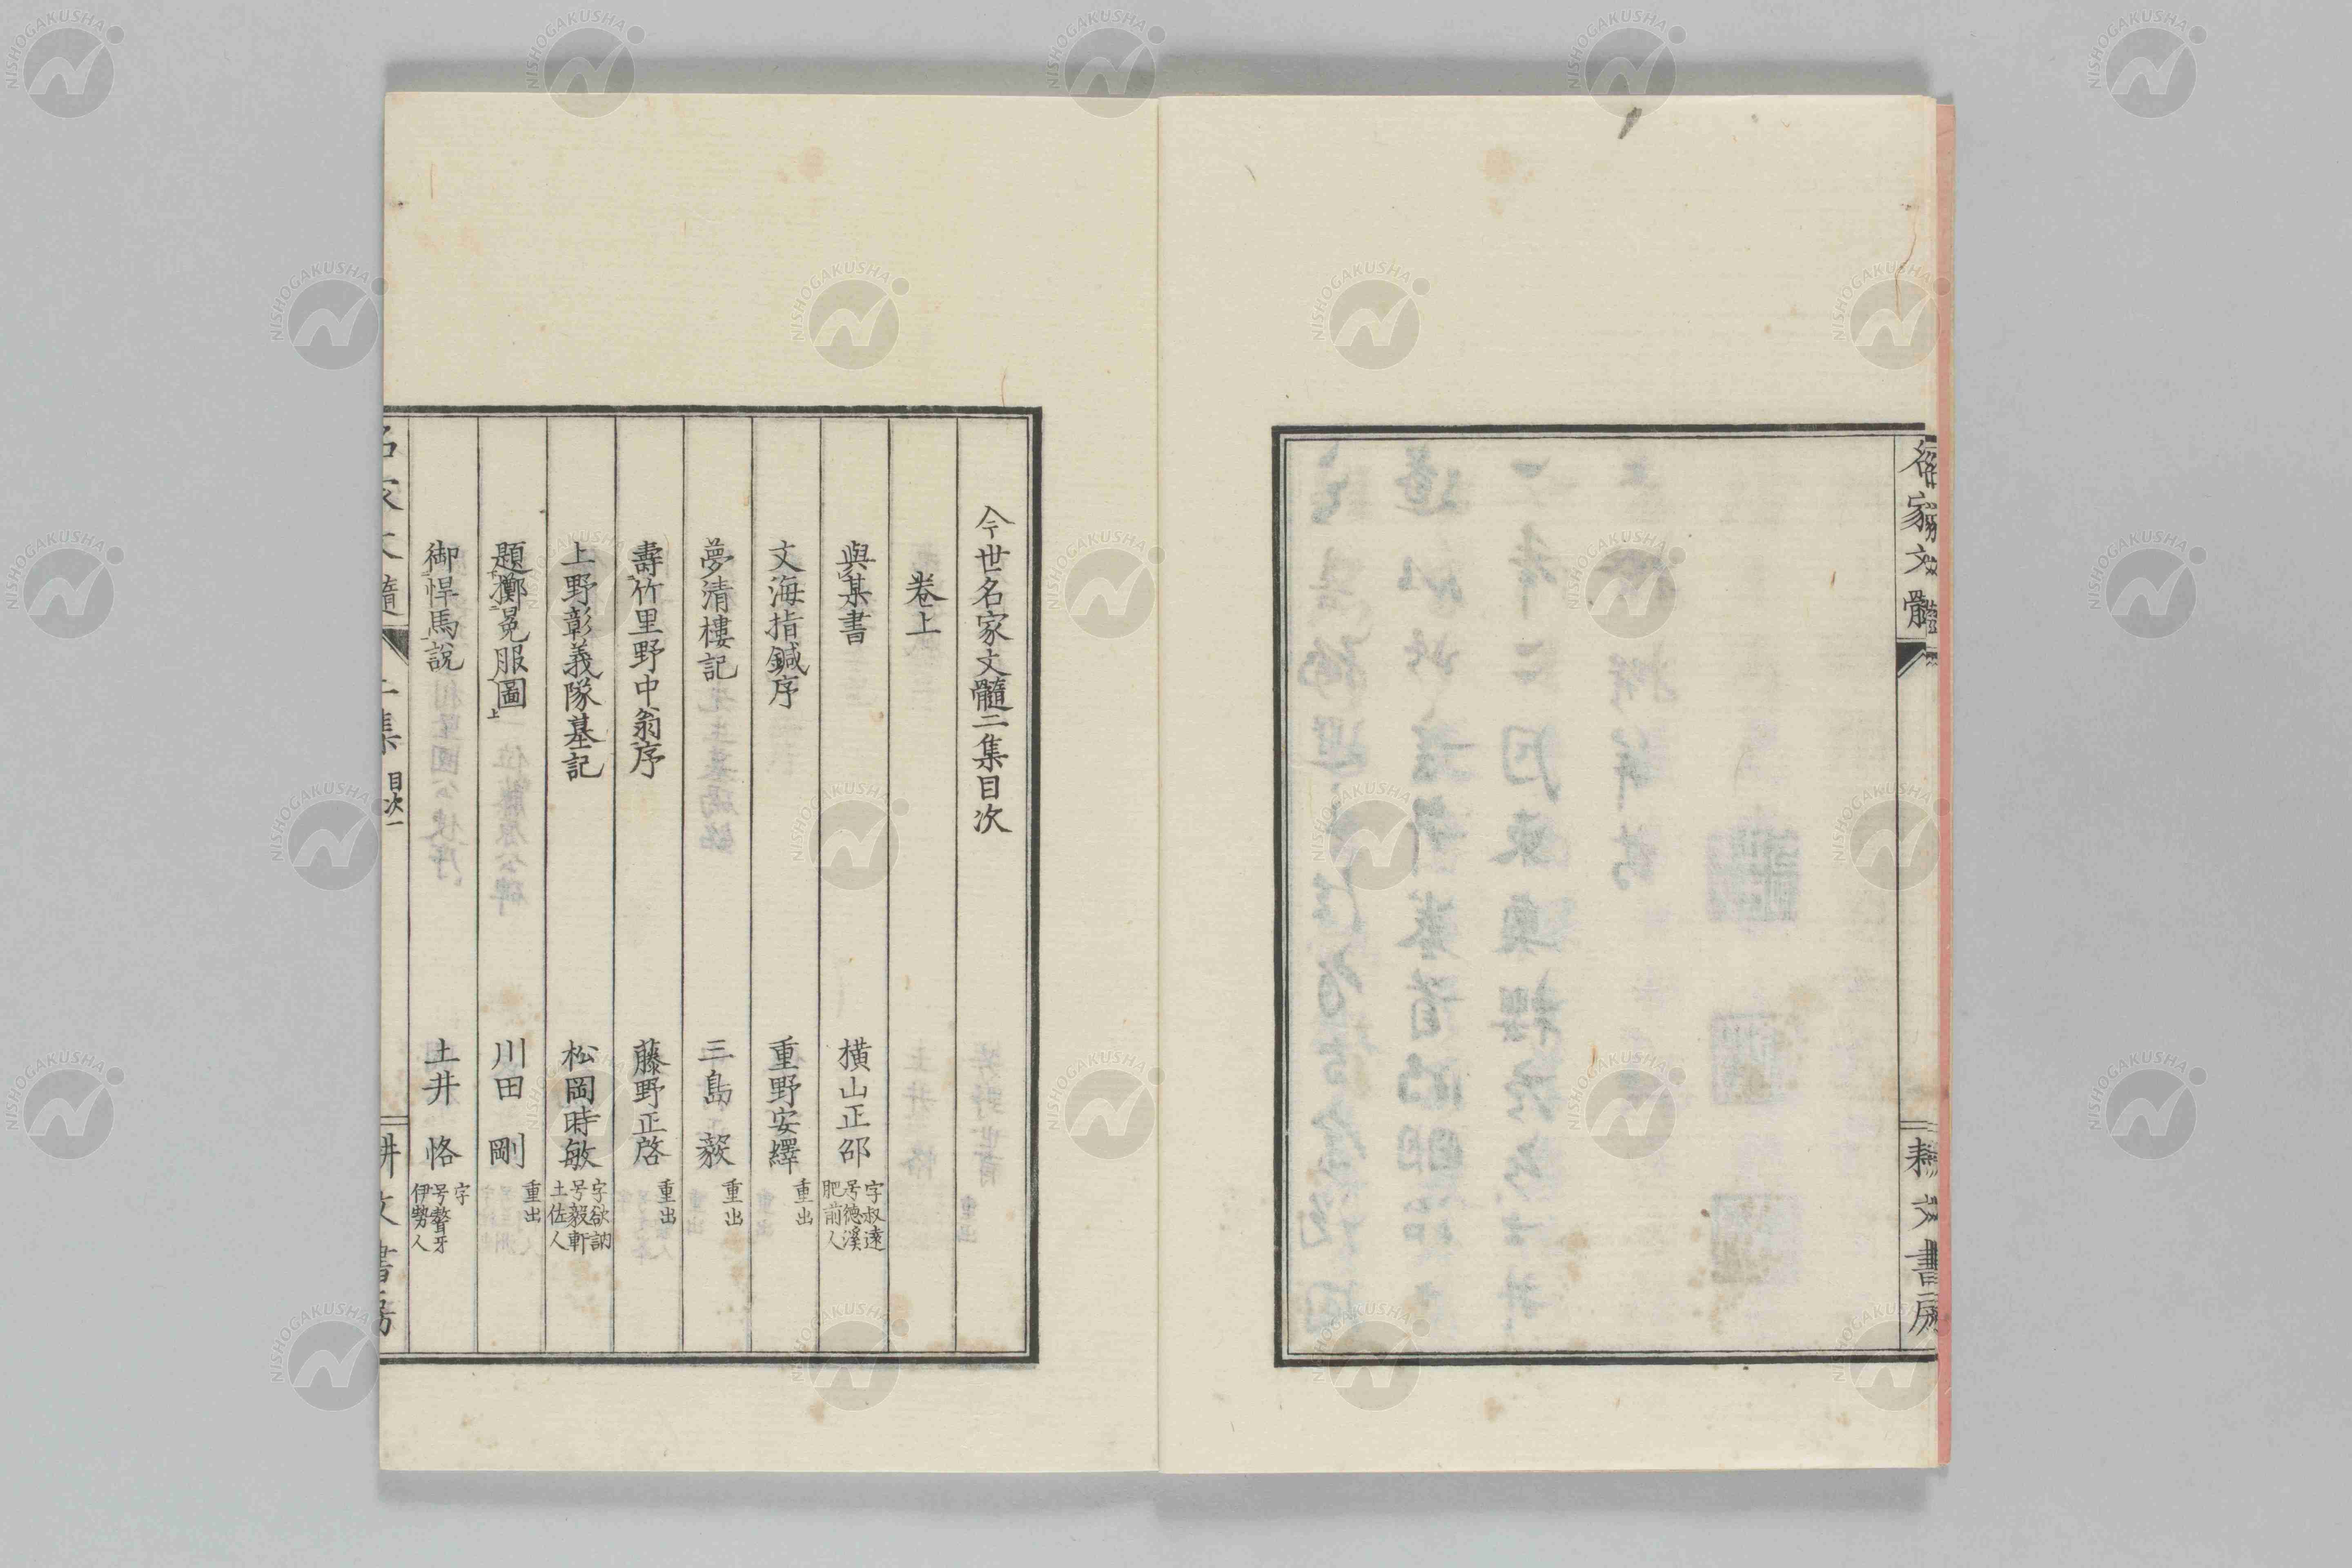 名家文髓
耕文書房
今世名家文髓二集目次
卷上
與某書 橫山正邵 字叔遠 号德溪 肥前人
文海指鍼序 重野安繹 重出
夢清樓記 三島毅 重出
壽竹里野中翁序 藤野正啓 重出
上野彰義隊墓記 松岡時敏 字欲訥 号毅軒 土佐人
題擲冕服圖 川田剛 重出
御悍馬說 土井恪 字 号聱牙 伊勢人
名家文髓 二集 目次 一
耕文書房
NISHOGAKUSHA